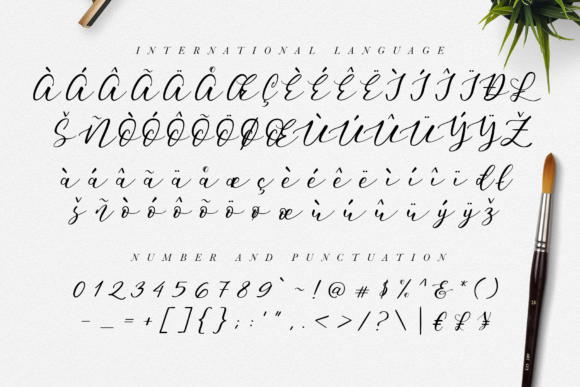 INTERNATIONAL LANGUAGE
À Á Â Ã Ä Å Æ Ç È É Ê Ë Ì Í Î Ï Ð Ł
Š Ñ Ò Ó Ô Õ Ö Ø Œ Ù Ú Û Ü Ý Ÿ Ž
à á â ã ä å æ ç è é ê ë ì í î ï đ ł
š ñ ò ó ô õ ö ø œ ù ú û ü ý ÿ ž
NUMBER AND PUNCTUATION
0 1 2 3 4 5 6 7 8 9 ` ~ ! @ # $ % ^ & * ( )
- _ = + [ ] { } ; : ' " , . < > / ? \ | € £ ¥